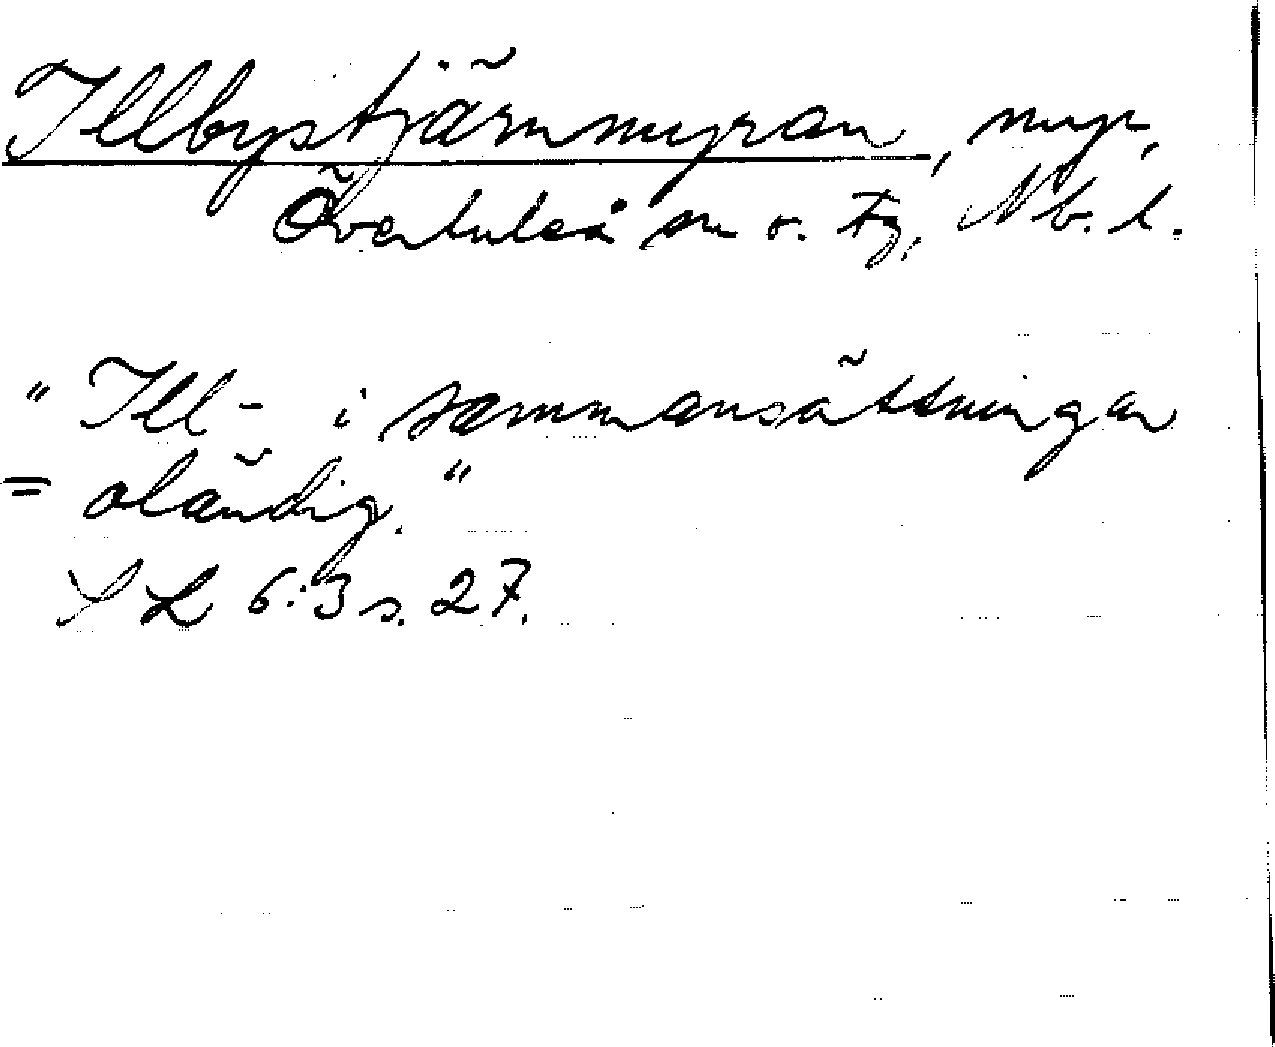 Illbystjärnmyran, myr,
Överluleå sn o. tg, Nb. l.
"Ill- i sammansättningar
= oländig."
SL 6:3 s. 27.